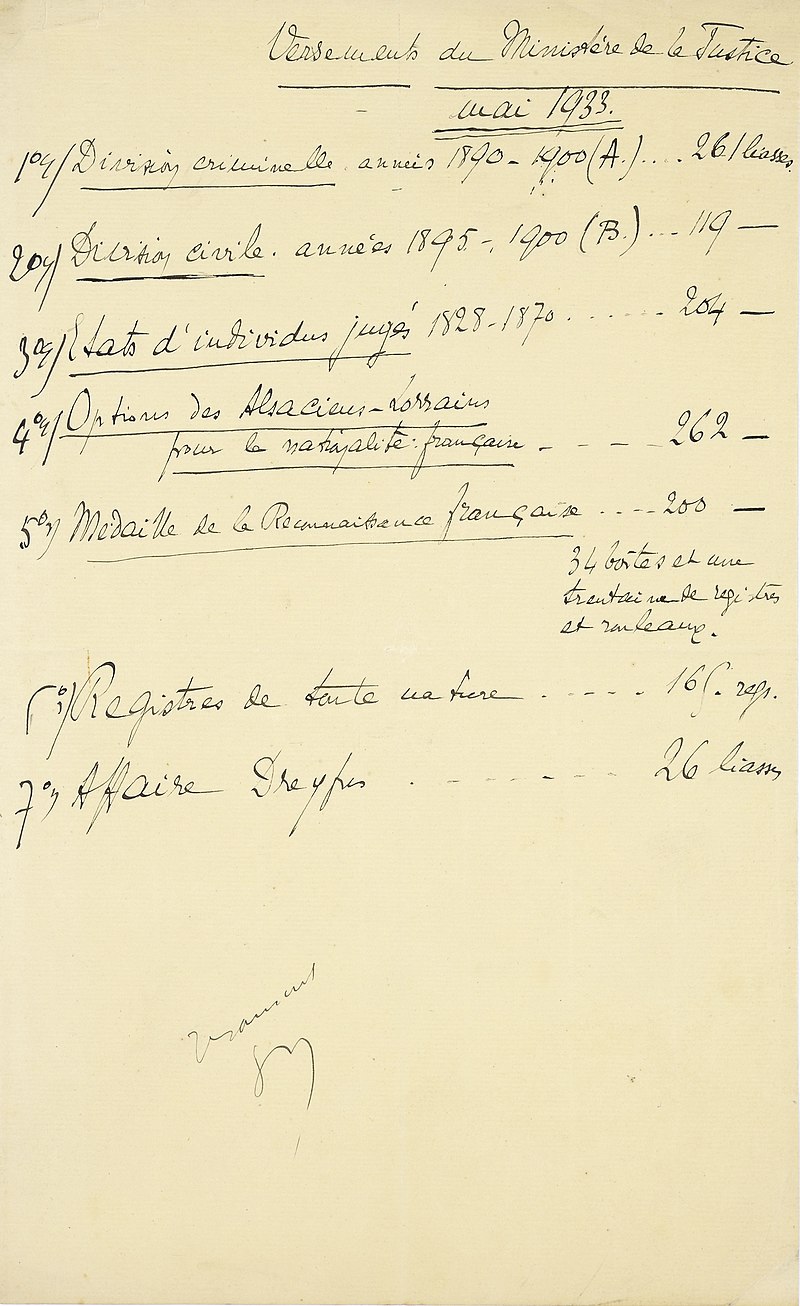 Versements du Ministère de la Justice
mai 1933.
1º/ Division criminelle années 1890-1900 (A.).... 261 liasses.
2º/ Division civile. années 1895-1900 (B.)... 119 —
3º/ Etats d'individus jugés 1828-1870....... 204 —
4º/ Options des Alsaciens-Lorrains
pour la nationalité française - - - - 262 —
5º/ Médaille de la Reconnaissance française .... 200 —
34 boîtes et une
trentaine de registres
et rouleaux.
6º/ Registres de toute nature ..... 165. regs.
7º/ Affaire Dreyfus . - - - - - - - 26 liasses